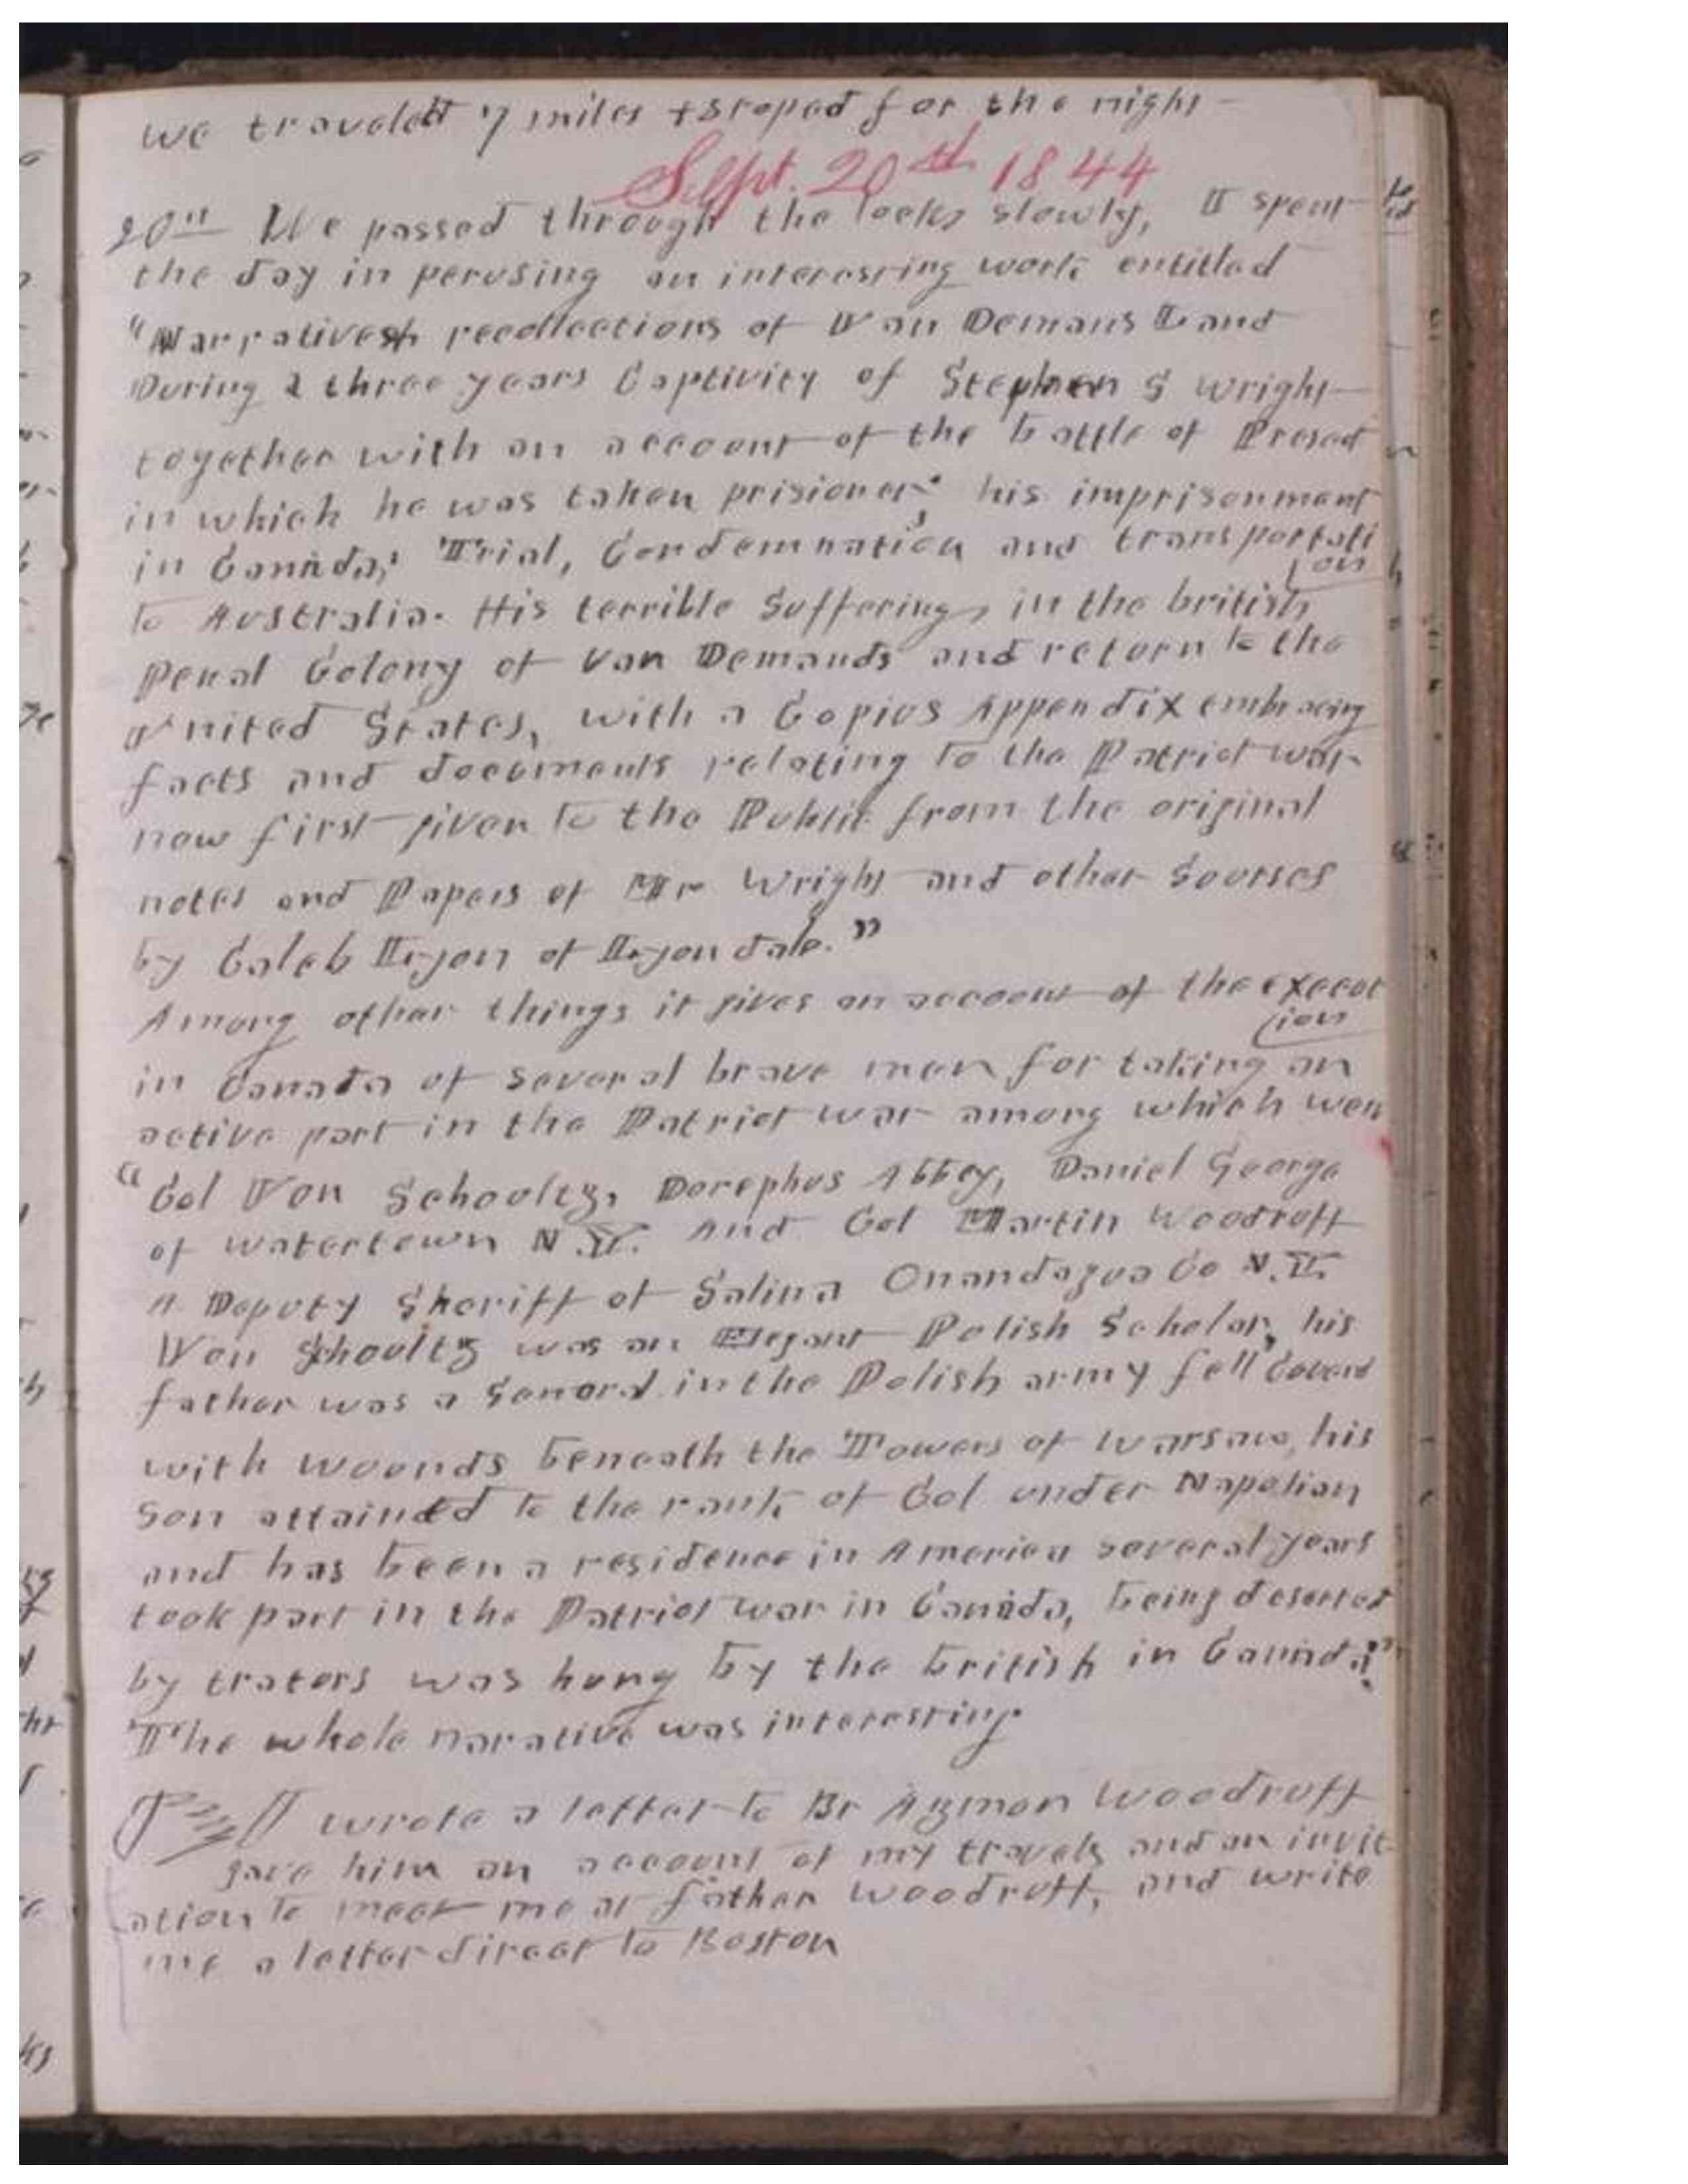 we traveled 7 miles + stoped for the night
Sept. 20th 1844
20th We passed through the locks slowly, I spent
the day in perusing an interesting work entitled
"Narratives & recollections of Van Demans Land
During a three years Captivity of Stephen S Wright
together with an account of the battle of Prescot
in which he was taken prisioner; his imprisonment
in Canada; Trial, Condemnation and transportati
on
to Australia. His terrible Suffering, in the british
Penal Colony of Van Demands and return to the
United States, with a Copius Appendix embracing
facts and documents relating to the Patriot war
now first given to the Public from the original
notes and Papers of Mr Wright and other Sourses
by Caleb Lyon of Lyondale."
Among other things it gives an account of the execut
ion
in Canada of several brave men for taking an
active part in the Patriot war among which were
"Col Von Schoultz, Dorephus Abbey, Daniel George
of Watertown N.Y. And Col Martin Woodruff
A Deputy Sheriff of Salina Onandagua Co N.Y.
Von Schoultz was an Elegant Polish Scholar, his
father was a General in the Polish army fell Coverd
with wounds beneath the Towers of Warsaw, his
Son attained to the rank of Col under Napolian
and has been a residence in America several years
took part in the Patriot war in Canada, being deserted
by traters was hung by the british in Canada."
The whole narative was interesting
I wrote a letter to Br Azmon Woodruff
gave him an account of my travels and an invit
ation to meet me at father Woodruff, and write
me a letter direct to Boston